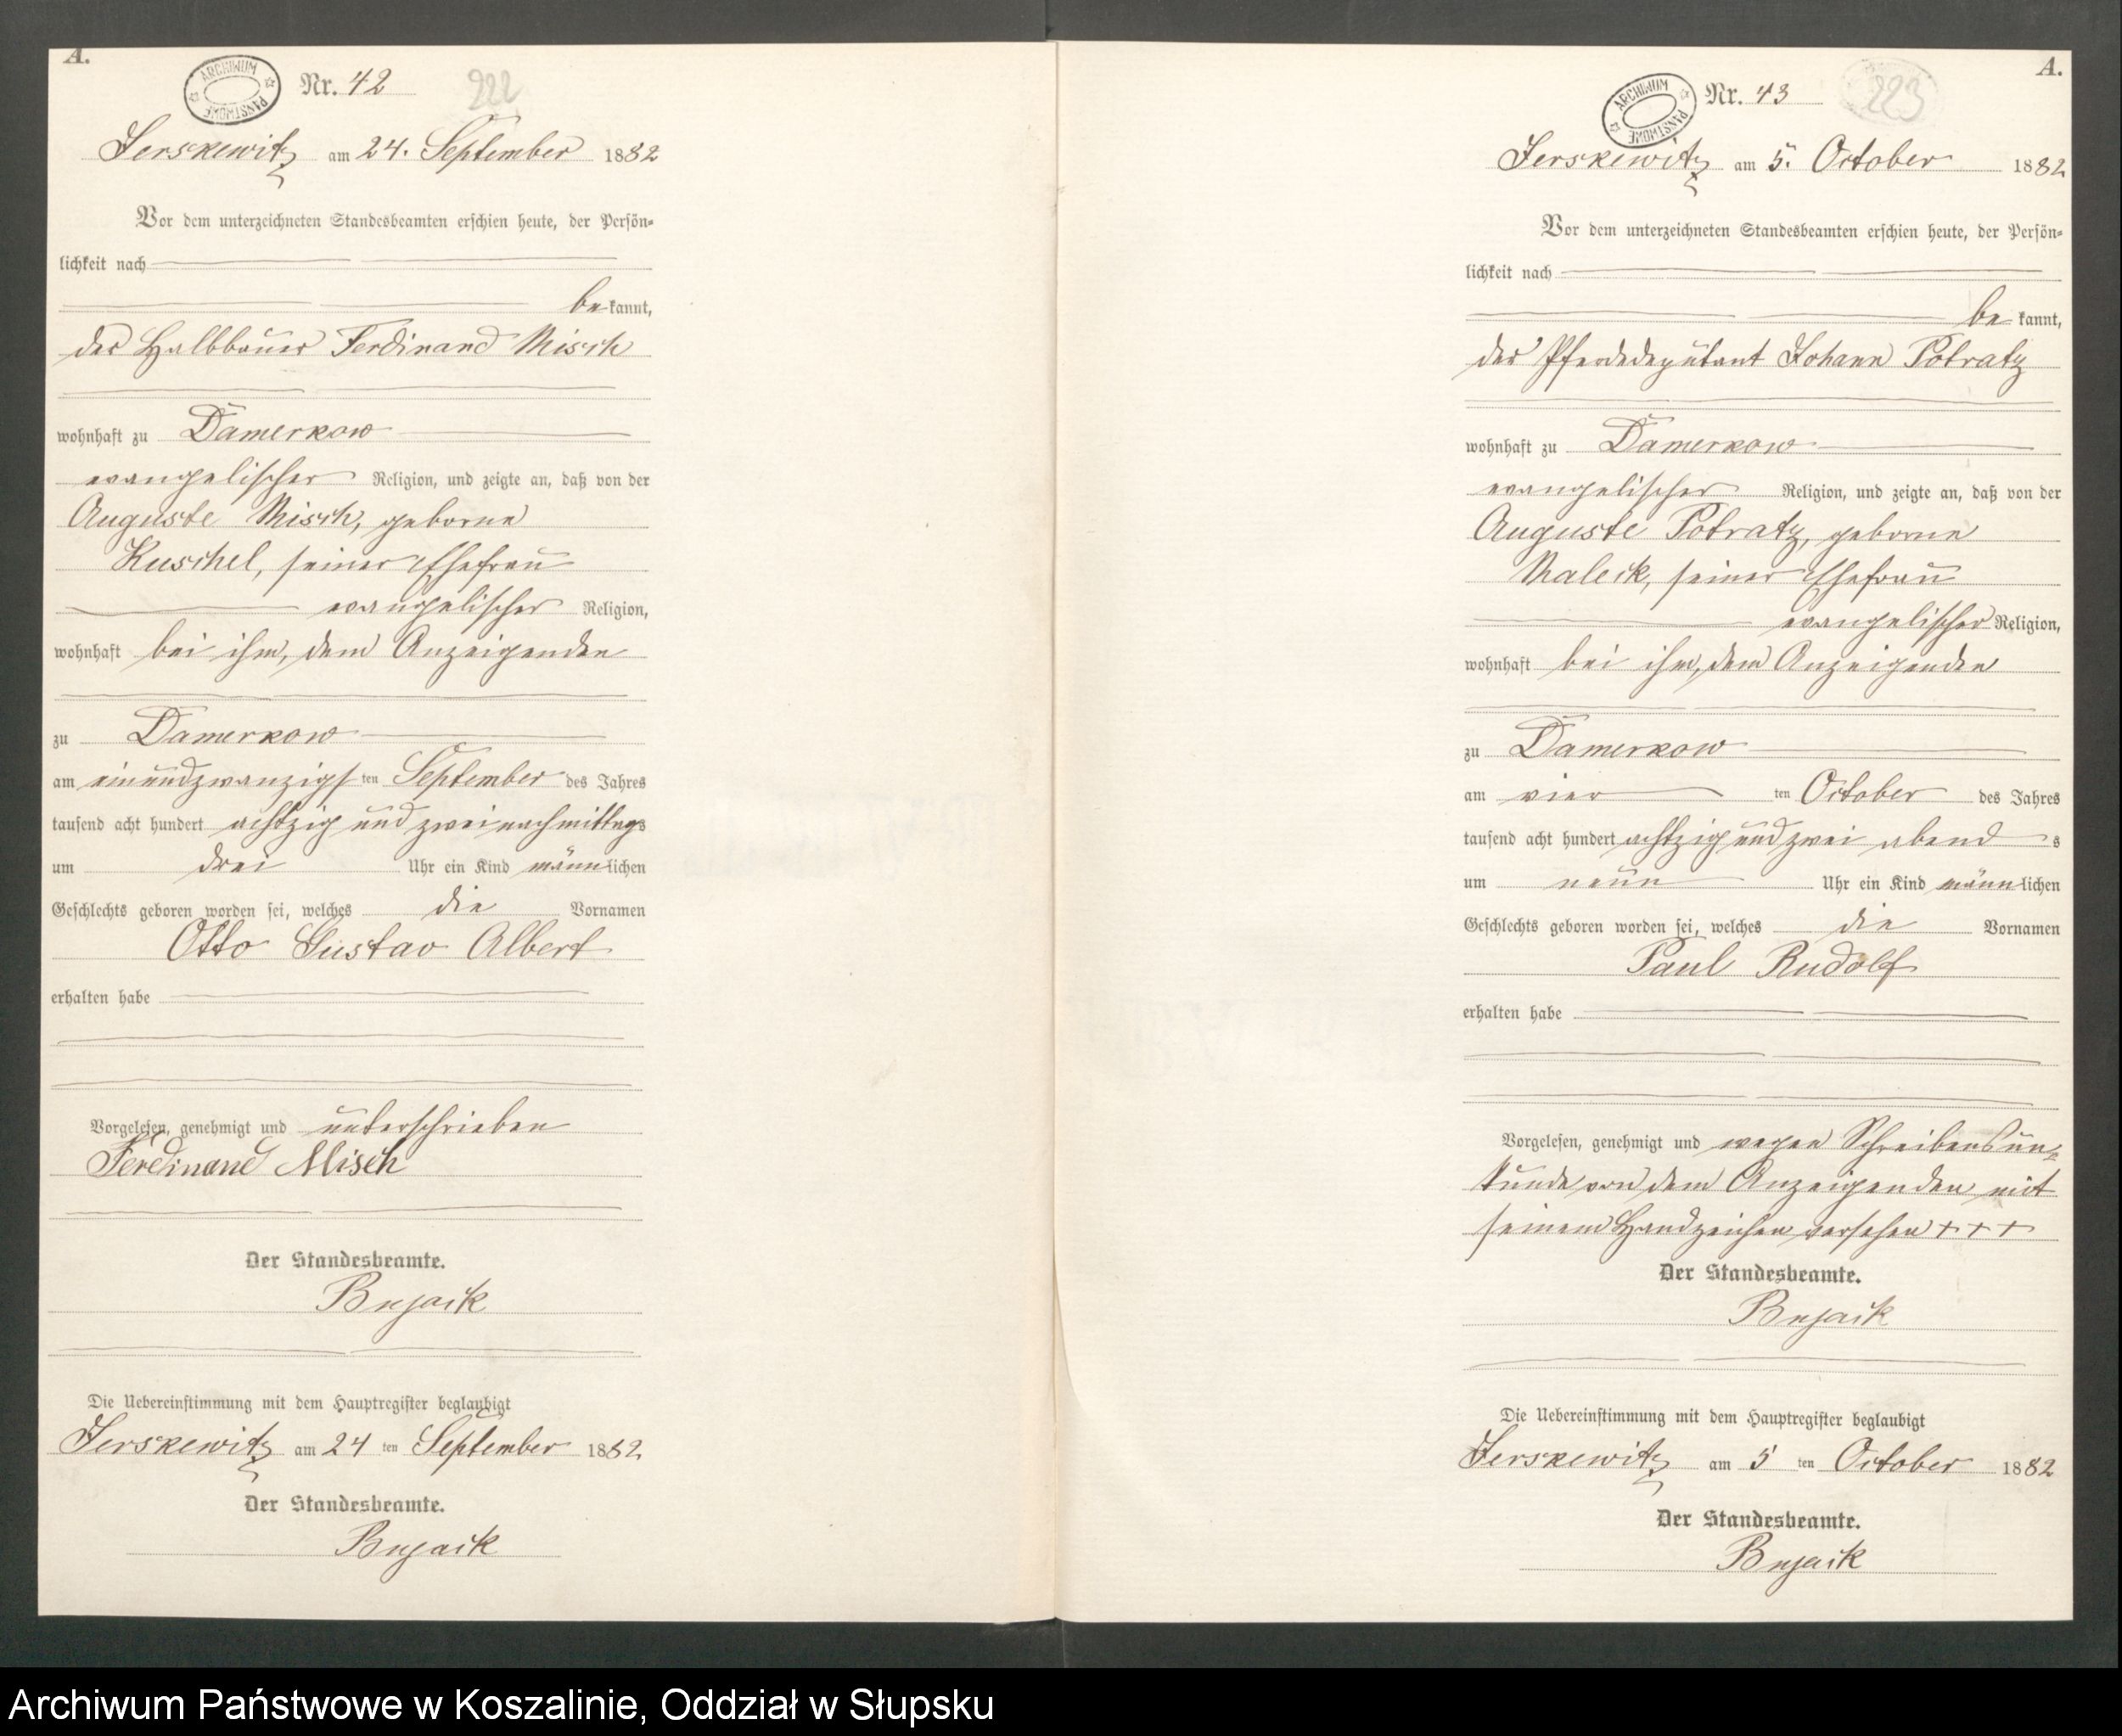 A.
ARCHIWUM PAŃSTWOWE
Nr. 42
222
Jerskewitz am 24. September 1882
Vor dem unterzeichneten Standesbeamten erschien heute, der Persön-
lichkeit nach
bekannt,
der Halbbauer Ferdinand Misch
wohnhaft zu Damerkow
evangelischer Religion, und zeigte an, daß von der
Auguste Misch, geborne
Kuschel, seiner Ehefrau
evangelischer Religion,
wohnhaft bei ihm, dem Anzeigenden
zu Damerkow
am einundzwanzigsten September des Jahres
tausend acht hundert achtzig und zwei nachmittags
um drei Uhr ein Kind männlichen
Geschlechts geboren worden sei, welches die Vornamen
Otto Gustav Albert
erhalten habe
Vorgelesen, genehmigt und unterschrieben
Ferdinand Misch
Der Standesbeamte.
Die Uebereinstimmung mit dem Hauptregister beglaubigt
Jerskewitz am 24 ten September 1882
Der Standesbeamte.
A.
ARCHIWUM PAŃSTWOWE
Nr. 43
223
Jerskewitz am 5. October 1882
Vor dem unterzeichneten Standesbeamten erschien heute, der Persön-
lichkeit nach
bekannt,
der Pferdedeputant Johann Potratz
wohnhaft zu Damerkow
evangelischer Religion, und zeigte an, daß von der
Auguste Potratz, geborne
Maleck, seiner Ehefrau
evangelischer Religion,
wohnhaft bei ihm, dem Anzeigenden
zu Damerkow
am vier ten October des Jahres
tausend acht hundert achtzig und zwei abends
um neun Uhr ein Kind männlichen
Geschlechts geboren worden sei, welches die Vornamen
Paul Rudolf
erhalten habe
Vorgelesen, genehmigt und wegen Schreibensun-
kunde von dem Anzeigenden mit
seinem Handzeichen versehen + + +
Der Standesbeamte.
Die Uebereinstimmung mit dem Hauptregister beglaubigt
Jerskewitz am 5 ten October 1882
Der Standesbeamte.
Archiwum Państwowe w Koszalinie, Oddział w Słupsku